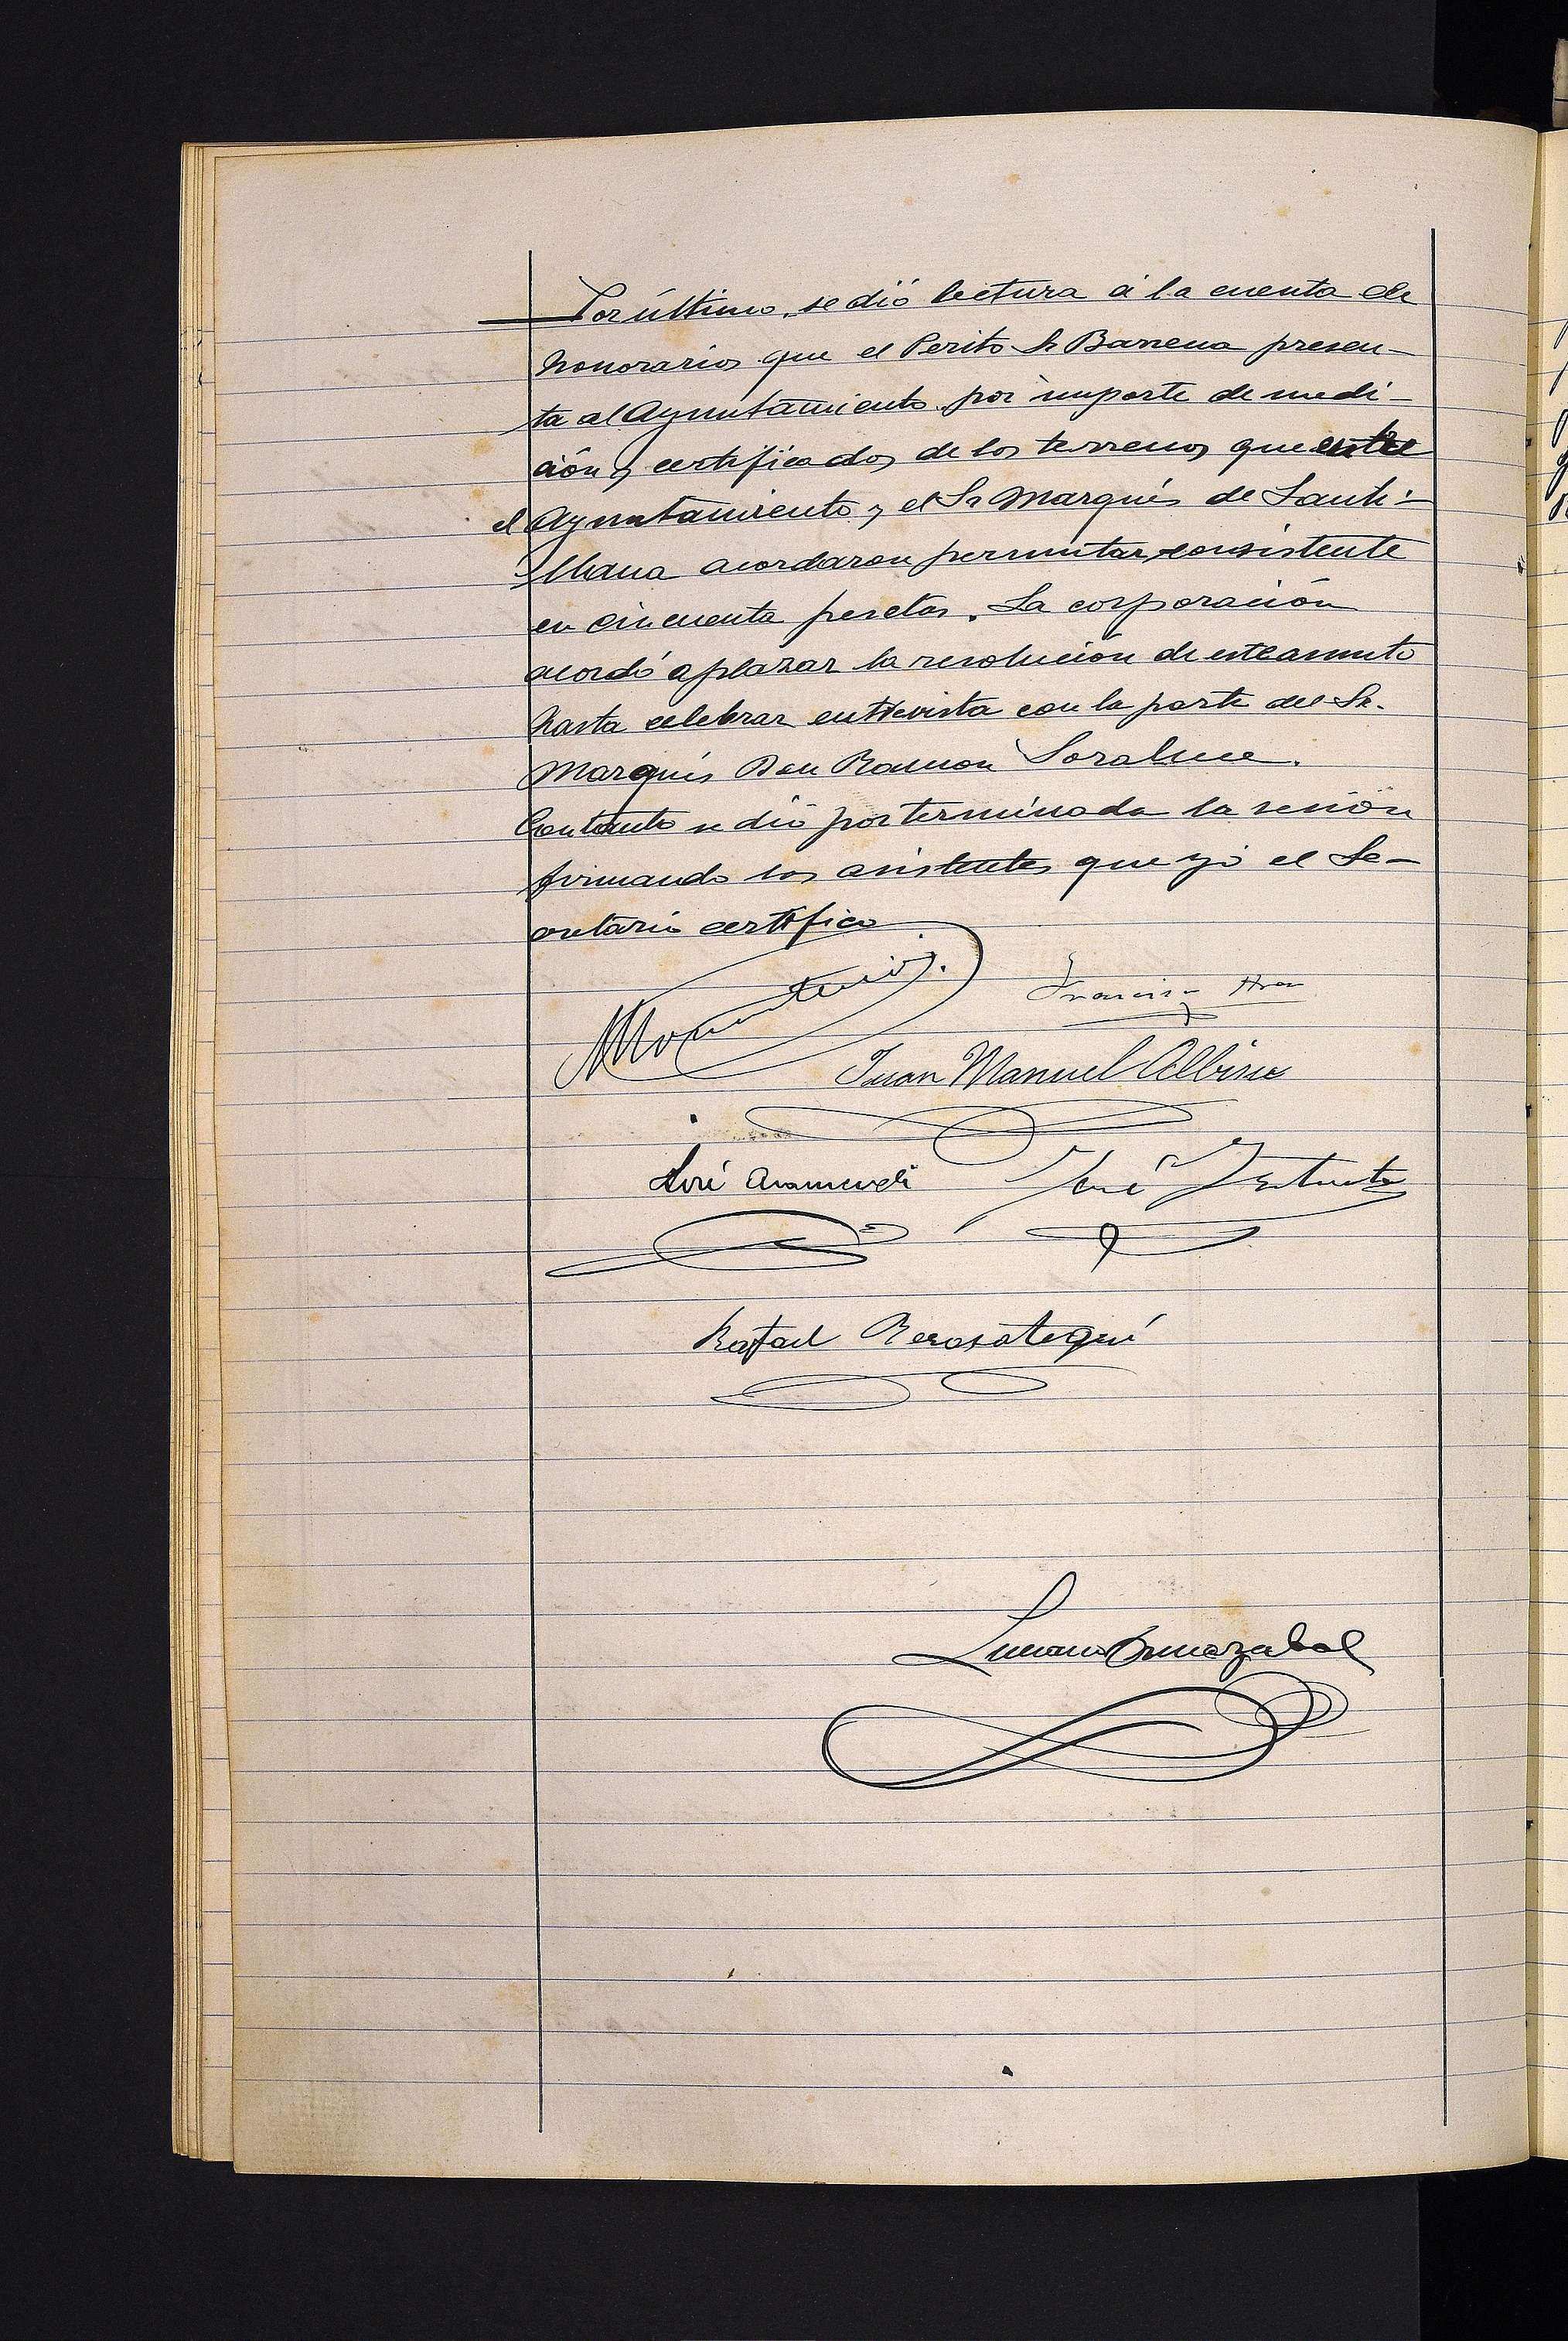 Por último, se dió lectura á la cuenta de
honorarios que el Perito Sr Barrena presen-
ta al Ayuntamiento por importe de medi-
ción y certificados de los terrenos que entre
el Ayuntamiento y el Sr Marqués de Santi-
llana acordaron permutar consistente
en cincuenta pesetas. La corporación
acordó aplazar la resolución de este asunto
hasta celebrar entrevista con la parte del Sr.
Marqués Don Ramon Soraluce.
Con tanto se dió por terminada la sesión
firmando los asistentes que yo el Se-
cretario certifico
Francisco
Juan Manuel Albisu
José Aramendi José
Rafael Berasategui
Luciano